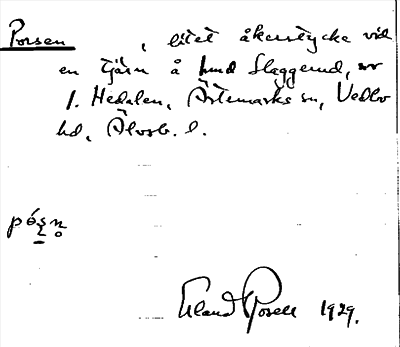 Porsen , litet åkerstycke vid
en tjärn å lmd Slaggerud, sv
f. Hedalen, Ärtemarks sn, Vedbo
hd, Älvsb. l.
pósn̥
Erland Rosell 1929.